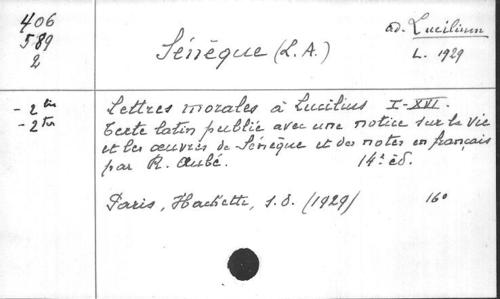 406
589
2
ad. Lucilium
L. 1929
Sénèque (L.A.)
- 2 bis
- 2 ter
Lettres morales à Lucilius I-XVI.
Texte latin publié avec une notice sur la vie
et les œuvres de Sénèque et des notes en français
par R. Aubé. 14e éd.
Paris, Hachette, s.d. (1929) 16°